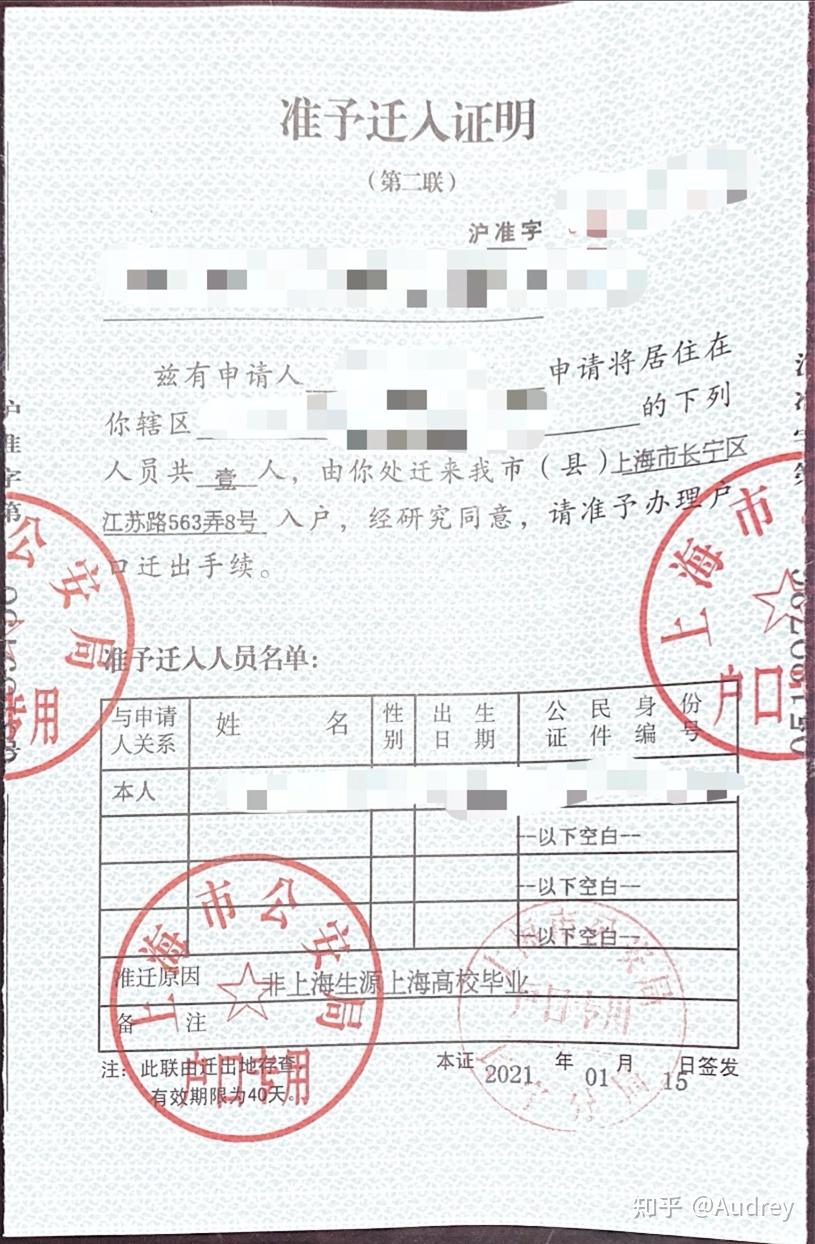 准予迁入证明
（第二联）
沪准字
兹有申请人 申请将居住在
你辖区 的下列
人员共 壹 人，由你处迁来我市（县）上海市长宁区
江苏路563弄8号 入户，经研究同意，请准予办理户
口迁出手续。
沪准字第
准予迁入人员名单：
与申请人关系 姓 名 性别 出生日期 公民身份证件编号
本人
--以下空白--
--以下空白--
--以下空白--
准迁原因 非上海生源上海高校毕业
备 注
注：此联由迁出地存查，
有效期限为40天。
本证 2021 年 01 月 15 日签发
公安局
专用
上海市
户口
上海市公安局
户口专用
上海市公安局
户口专用
知乎 @Audrey